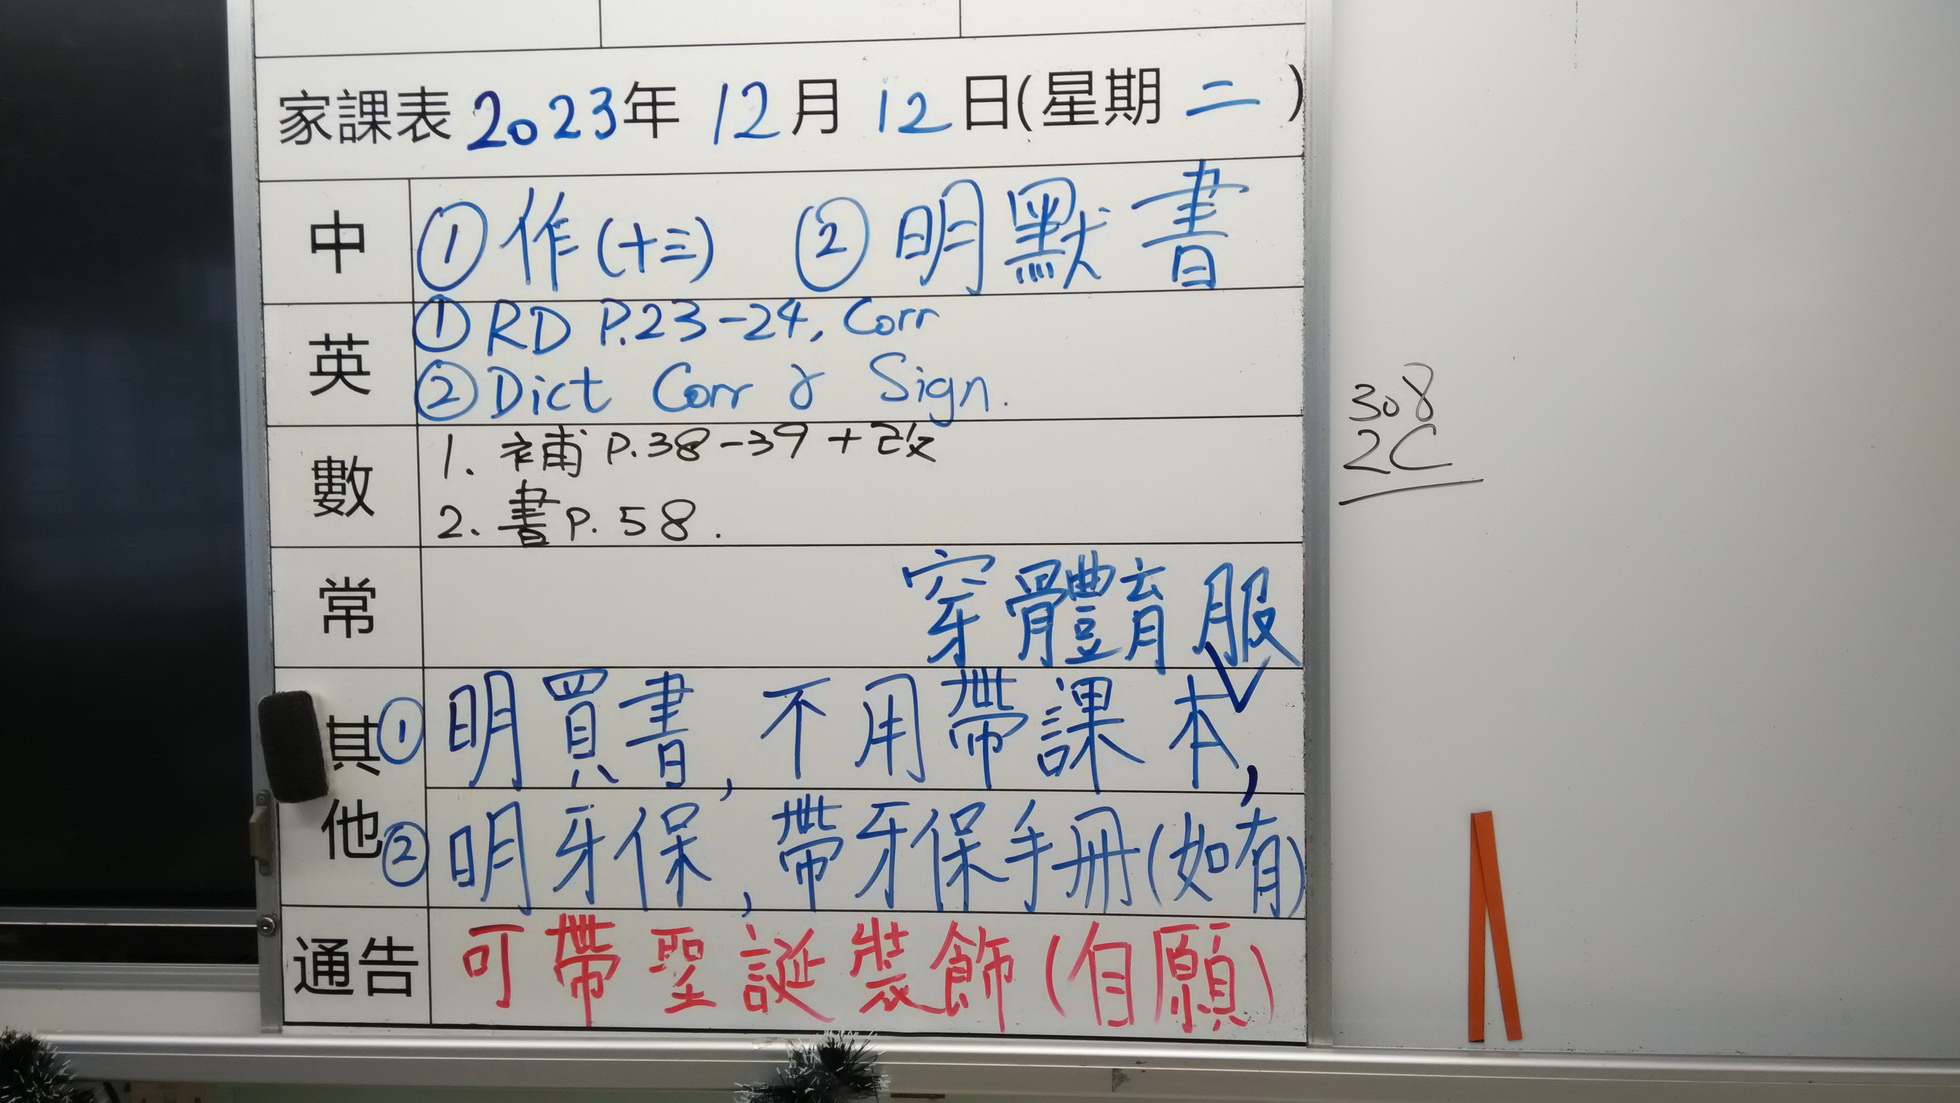 家課表 2023年 12月 12日(星期二)
中 ①作(十三) ②明默書
英 ①RD P.23-24, Corr
②Dict Corr & Sign.
數 1. 補 P.38-39 + 改
2. 書 P.58.
常 穿體育服
其他 ①明買書, 不用帶課本,
②明牙保, 帶牙保手冊(如有)
通告 可帶聖誕裝飾(自願)
308
2C